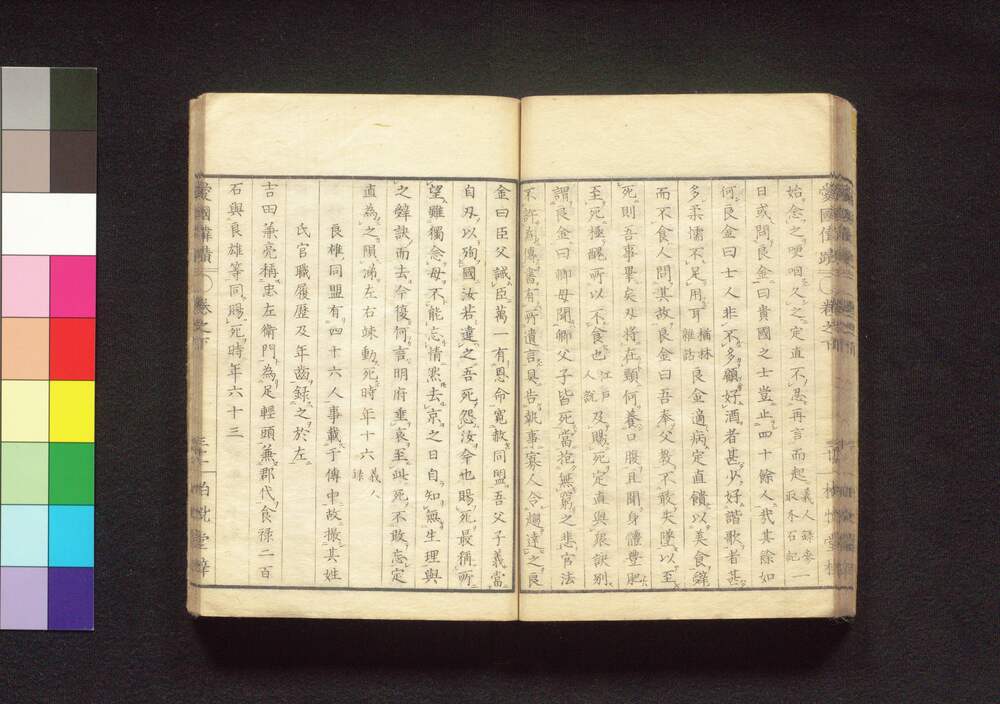 始念之哽咽久之定直不忍再言而起義人錄參取介石記一
日或問良金曰貴國之士豈止四十餘人哉其餘如
何良金曰士人非不多顧好酒者甚少好諧歌者甚
多柔懦不足用耳橘林雜話良金適病定直饋以美食辭
而不食人問其故良金曰吾奉父教不敢失墜以至
死則吾事畢矣刃將在頸何養口腹且聞身體豐肥
至死極醜所以不食也江戶人說及賜死定直與眾訣別
謂良金曰卿母聞卿父子皆死當抱無窮之悲官法
不許為傳書有所遺言具告執事寡人令趨達之良
金曰臣父誡臣萬一有恩命寬赦同盟吾父子義當
自刃以殉國汝若違之吾死怨汝今也賜死最稱所
望雖獨念母不能忘情然去京之日自知無生理與
之辭訣而去今復何言明府垂哀至此死不敢忘定
直為之隕涕左右竦動死時年十六義人錄
良雄同盟有四十六人事載于傳中故掇其姓
氏官職履歷及年齒錄之於左
吉田兼亮稱忠左衛門為足輕頭兼郡代食祿二百
石與良雄等同賜死時年六十三
卷之下